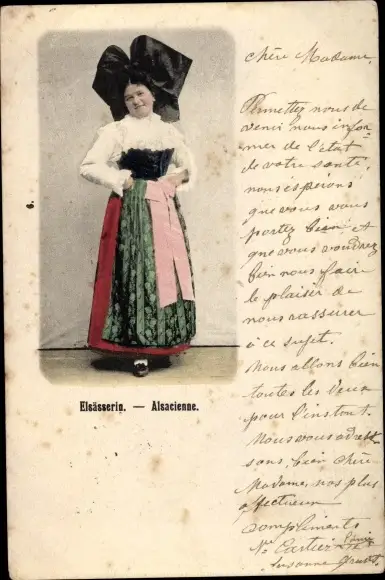 Chère Madame,
Permettez nous de
venir nous infor
mer de l'état
de votre santé,
nous espérons
que vous vous
portez bien et
que vous voudrez
bien nous faire
le plaisir de
nous rassurer
à ce sujet.
Nous allons bien
toutes les deux
pour l'instant.
Nous vous adres
sons, bien chère
Madame, nos plus
affectueux
compliments
Cartier
Susanne
Elsässerin. — Alsacienne.